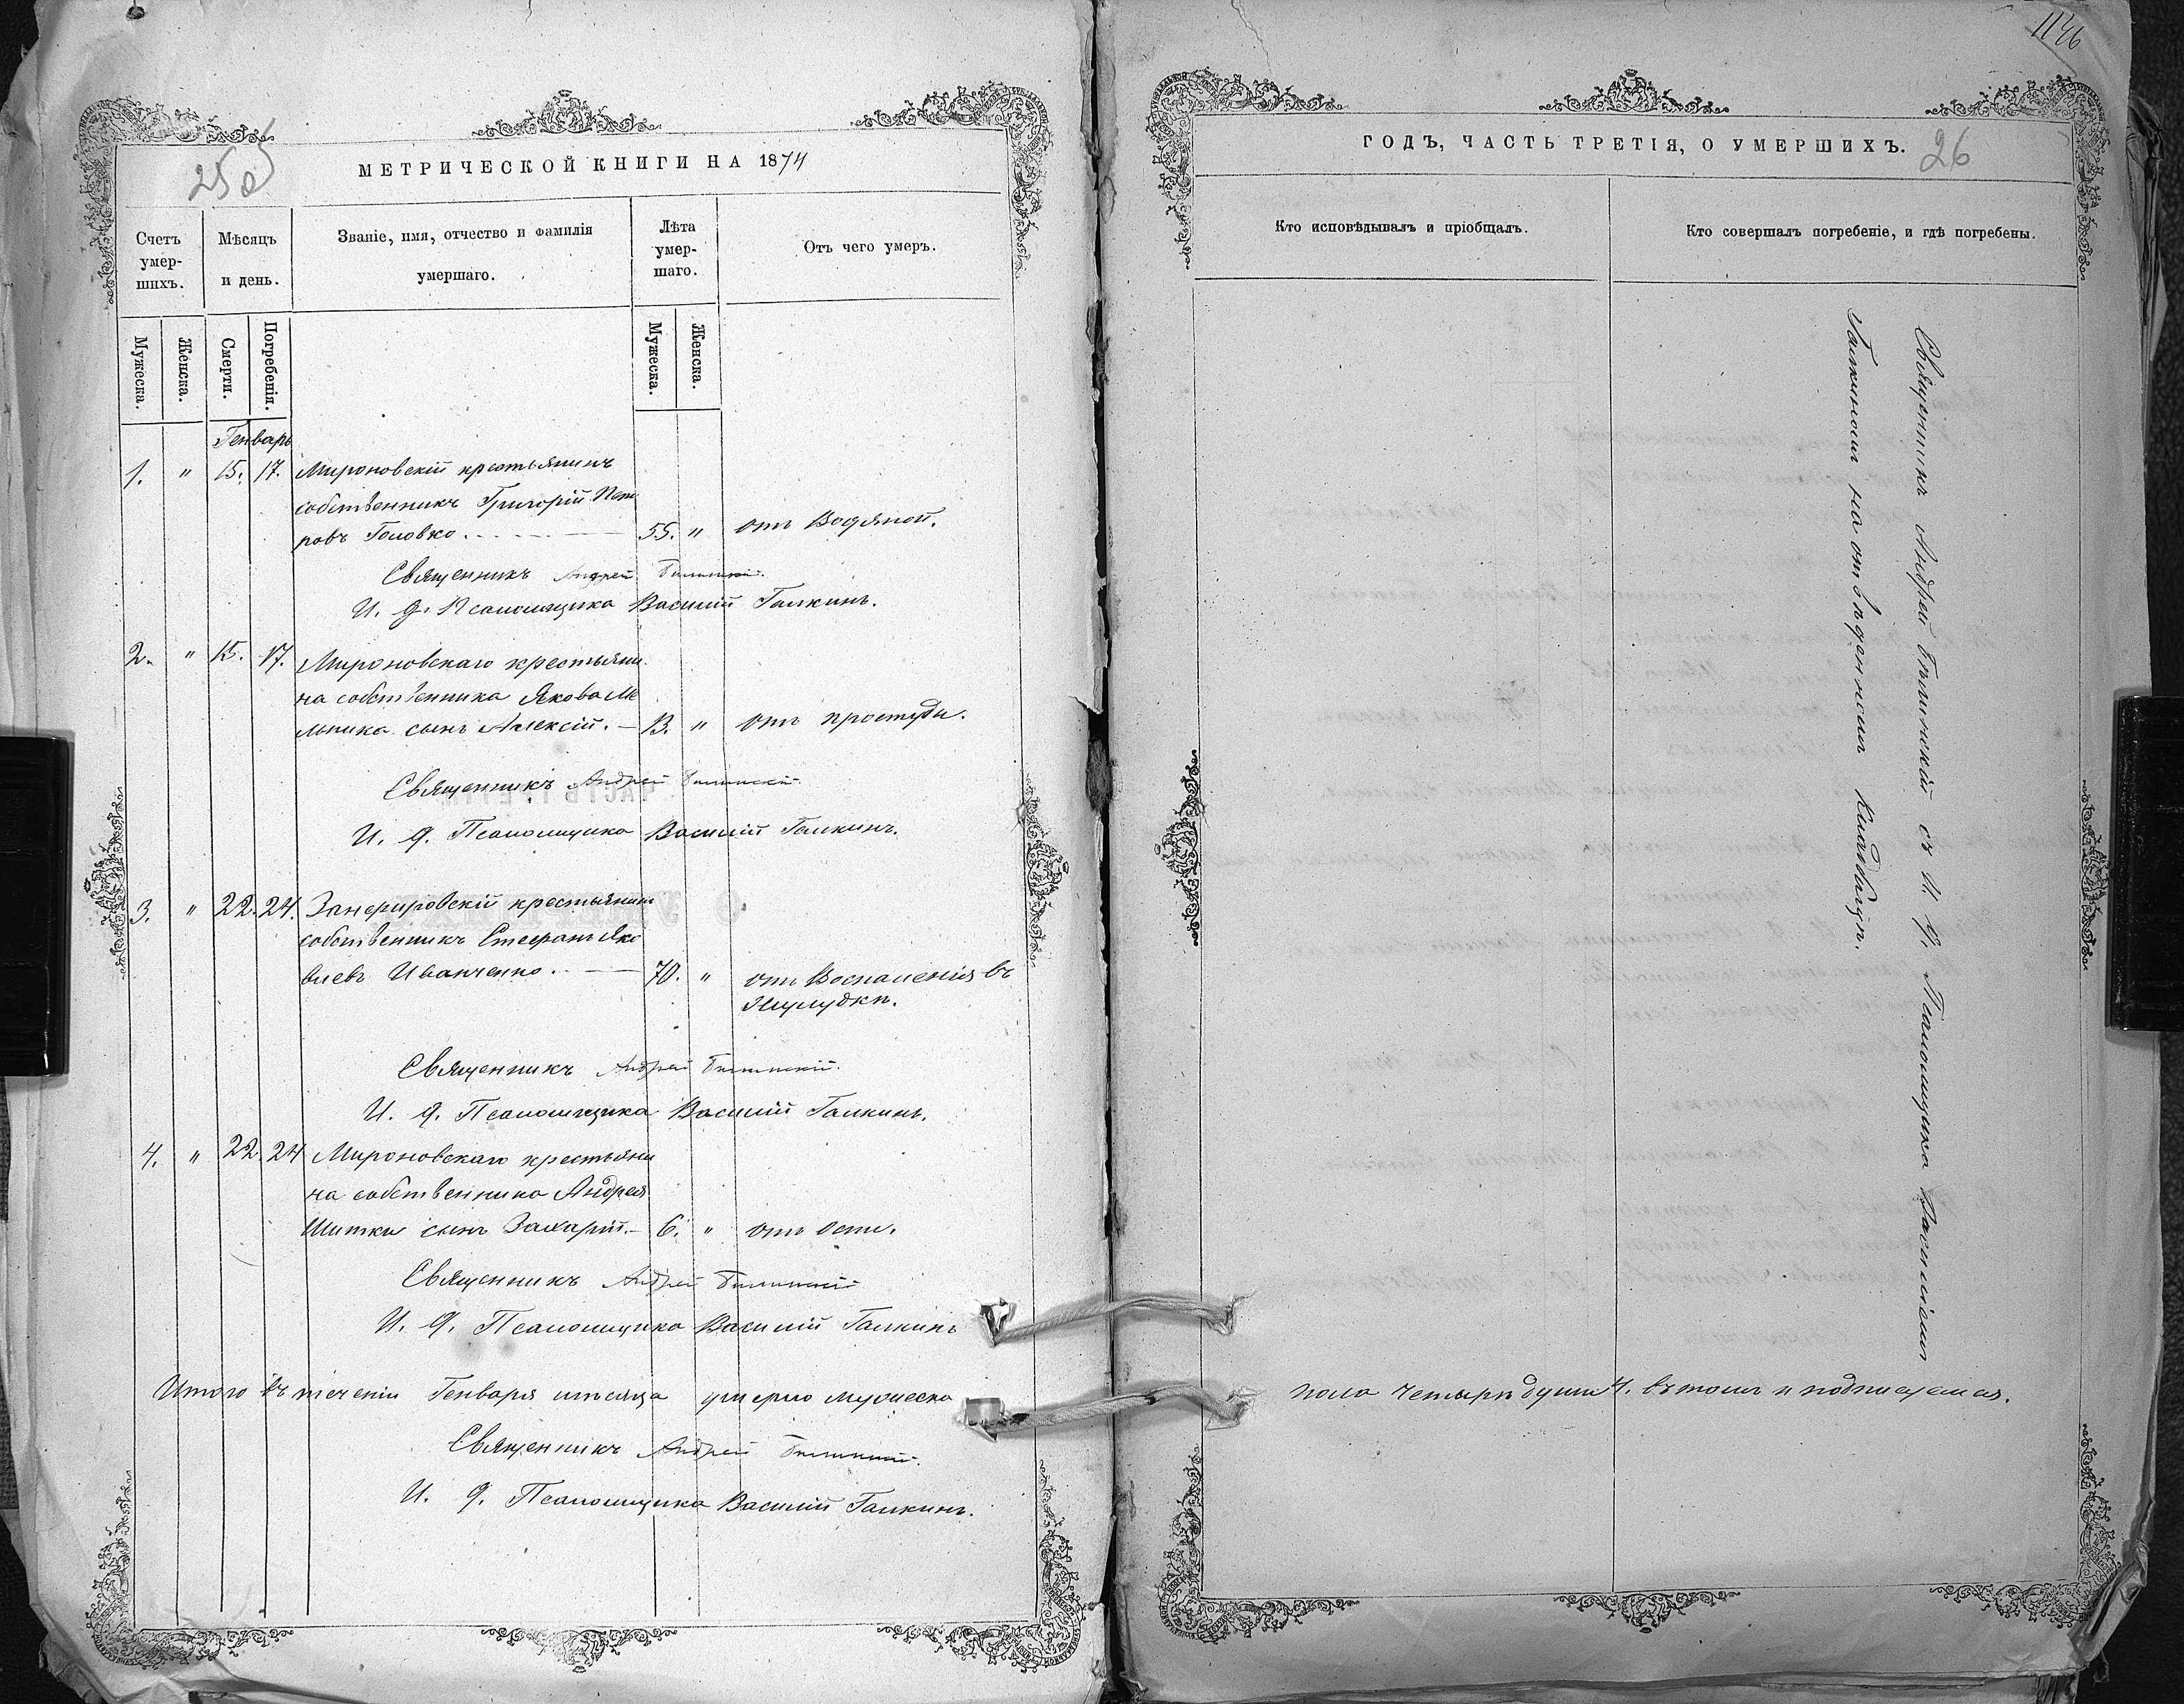 1126
МЕТРИЧЕСКОЙ КНИГИ НА 1874
ГОДЪ, ЧАСТЬ ТРЕТІЯ, О УМЕРШИХЪ.
26
Счетъ умер- шихъ.
Мѣсяцъ и день.
Званіе, имя, отчество и фамилія умершаго.
Лѣта умер- шаго.
Отъ чего умеръ.
Кто исповѣдывалъ и пріобщалъ.
Кто совершалъ погребеніе, и гдѣ погребены.
Мужеска.
Женска.
Смерти.
Погребенія.
Мужеска.
Женска.
Генварь
1. " 15. 17. Мироновскій крестьянинъ
собственникъ Григорій Пет
ровъ Головко. 55. " отъ Водяной.
Священникъ Андрей
И. д. Псаломщика Василій Галкинъ.
2. " 15. 17. Мироновскаго крестьяни
на собственника Якова Ме
льника сынъ Алексій. 13. " отъ простуды.
Священникъ Андрей
И. д. Псаломщика Василій Галкинъ.
3. " 22. 24. крестьянинъ
собственникъ Стефанъ Яко
влевъ Иванченко. 70. " отъ Воспаленія въ
Желудкѣ.
Священникъ Андрей
И. д. Псаломщика Василій Галкинъ.
4. " 22. 24 Мироновскаго крестьяни
на собственника Андрея
сынъ Захарій. 6. " отъ Оспы.
Священникъ Андрей
И. д. Псаломщика Василій Галкинъ
Итого въ теченіи Генваря мѣсяца умерло мужеска
пола четырѣ души 4. въ томъ и подписуемся.
Священникъ Андрей
И. д. Псаломщика Василій Галкинъ.
Священникъ Андрей съ И. д. Псаломщика Василіемъ
Галкиномъ на отведенномъ Кладбищѣ.